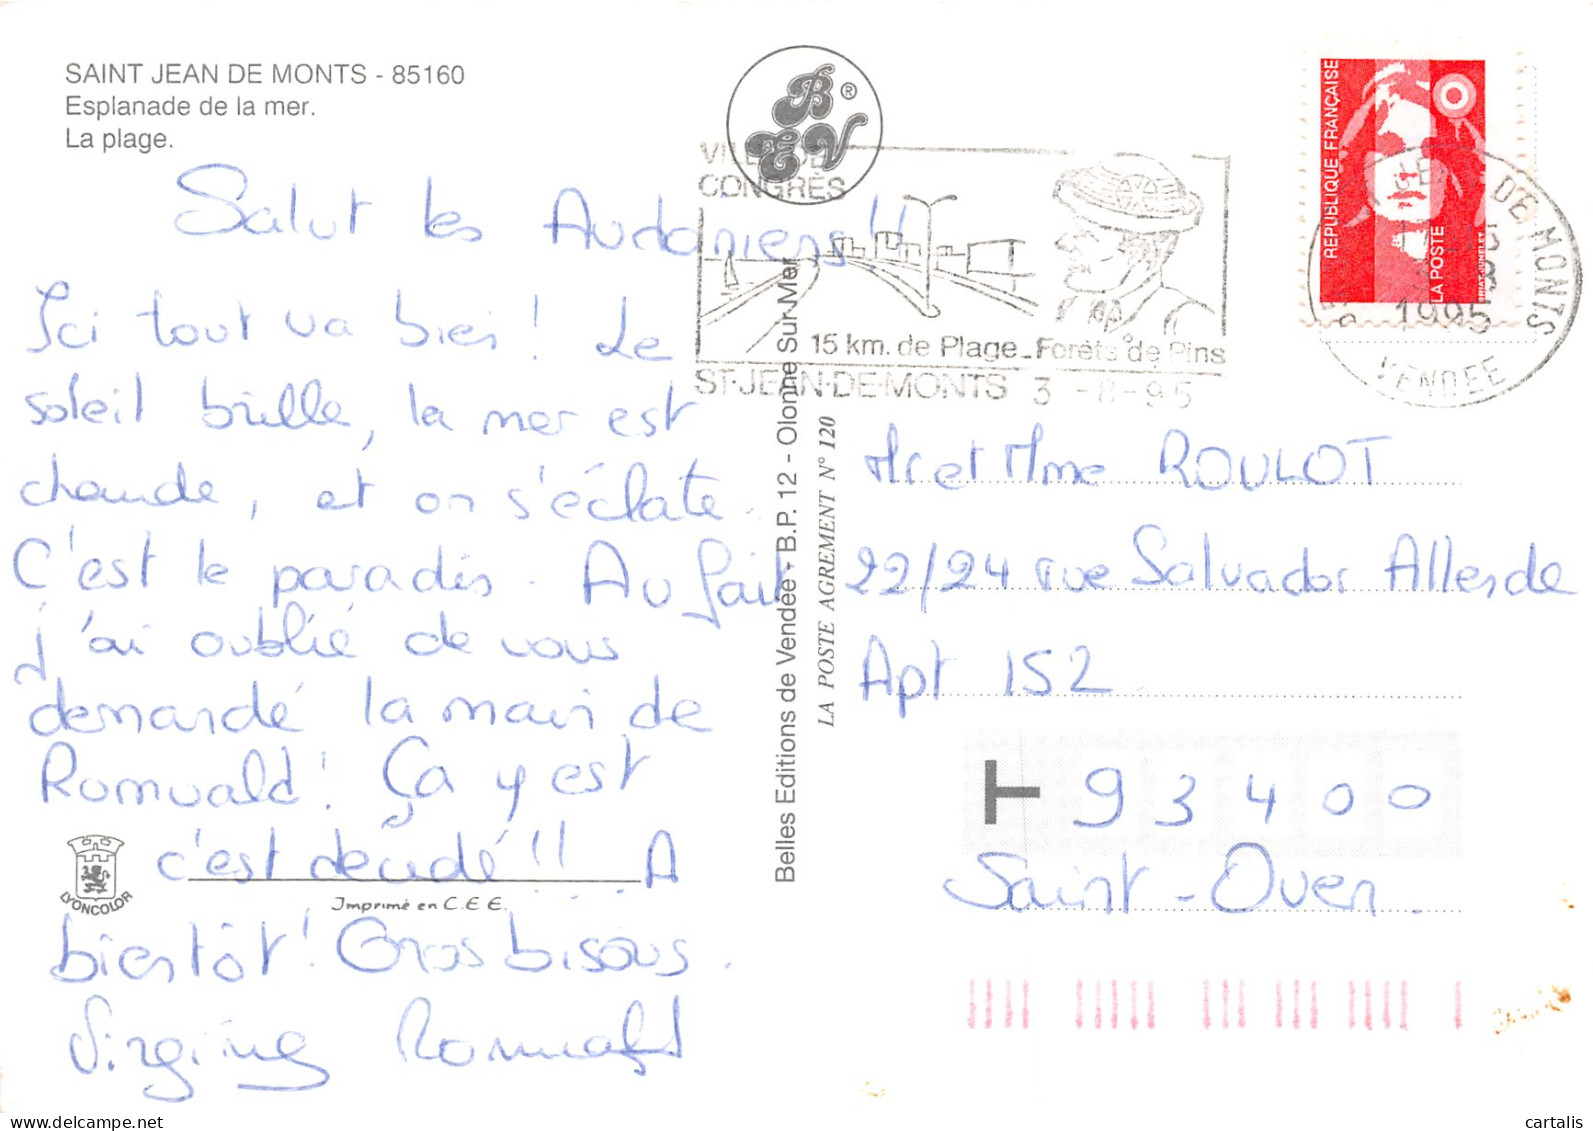 SAINT JEAN DE MONTS - 85160
Esplanade de la mer.
La plage.
Salut les Audoniens !!
Ici tout va bien ! Le
soleil brille, la mer est
chaude, et on s'éclate.
C'est le paradis. Au fait
j'ai oublié de vous
demandé la main de
Romuald ! Ça y est
c'est décidé !! A
bientôt ! Gros bisous.
Virginie Romuald
LYONCOLOR
Imprimé en C.E.E.
BEV ®
VILLE DE
CONGRÈS
15 km. de Plage_Forêts de Pins
ST-JEAN-DE-MONTS 3 -8-95
Belles Editions de Vendée - B.P. 12 - Olonne Sur Mer
LA POSTE AGREMENT N° 120
REPUBLIQUE FRANÇAISE
LA POSTE
BRIAT-JUMELET
DE MONTS
1995
VENDEE
Mr et Mme ROULOT
22/24 rue Salvador Allende
Apt 152
T 93400
Saint-Ouen.
www.delcampe.net
cartalis